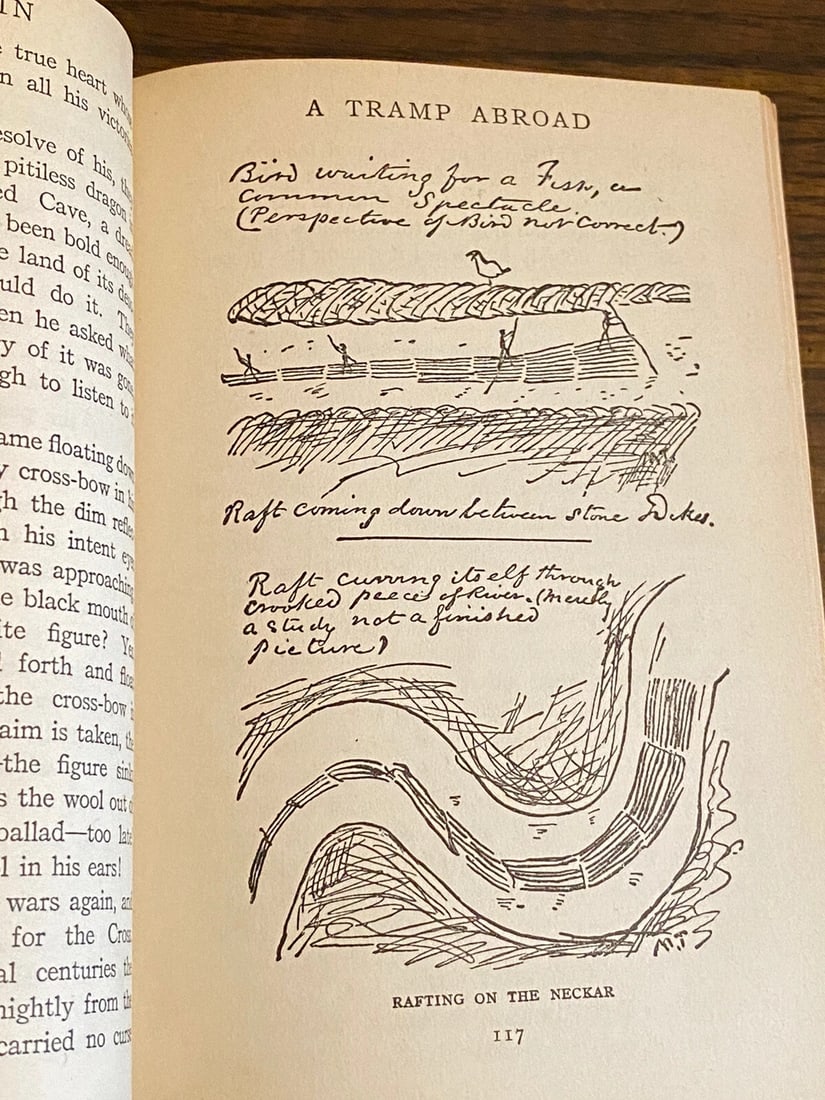 IN
true heart
n all his
esolve of his,
pitiless dragon
ed Cave, a
been bold
e land of its
uld do it.
en he asked
y of it was
gh to listen to
ame floating
y cross-bow in
gh the dim
n his intent
was approaching
e black mouth
ite figure?
forth and
the cross-bow
aim is taken,
the figure
s the wool out
ballad—too late
l in his ears!
wars again,
for the
al centuries
nightly from
carried no
A TRAMP ABROAD
Bird waiting for a Fish, a
common Spectacle.
(Perspective of Bird not Correct.)
Raft coming down between stone Dikes.
Raft curving itself through
crooked peece of River. (Merely
a study not a finished
picture)
M.T.
RAFTING ON THE NECKAR
117